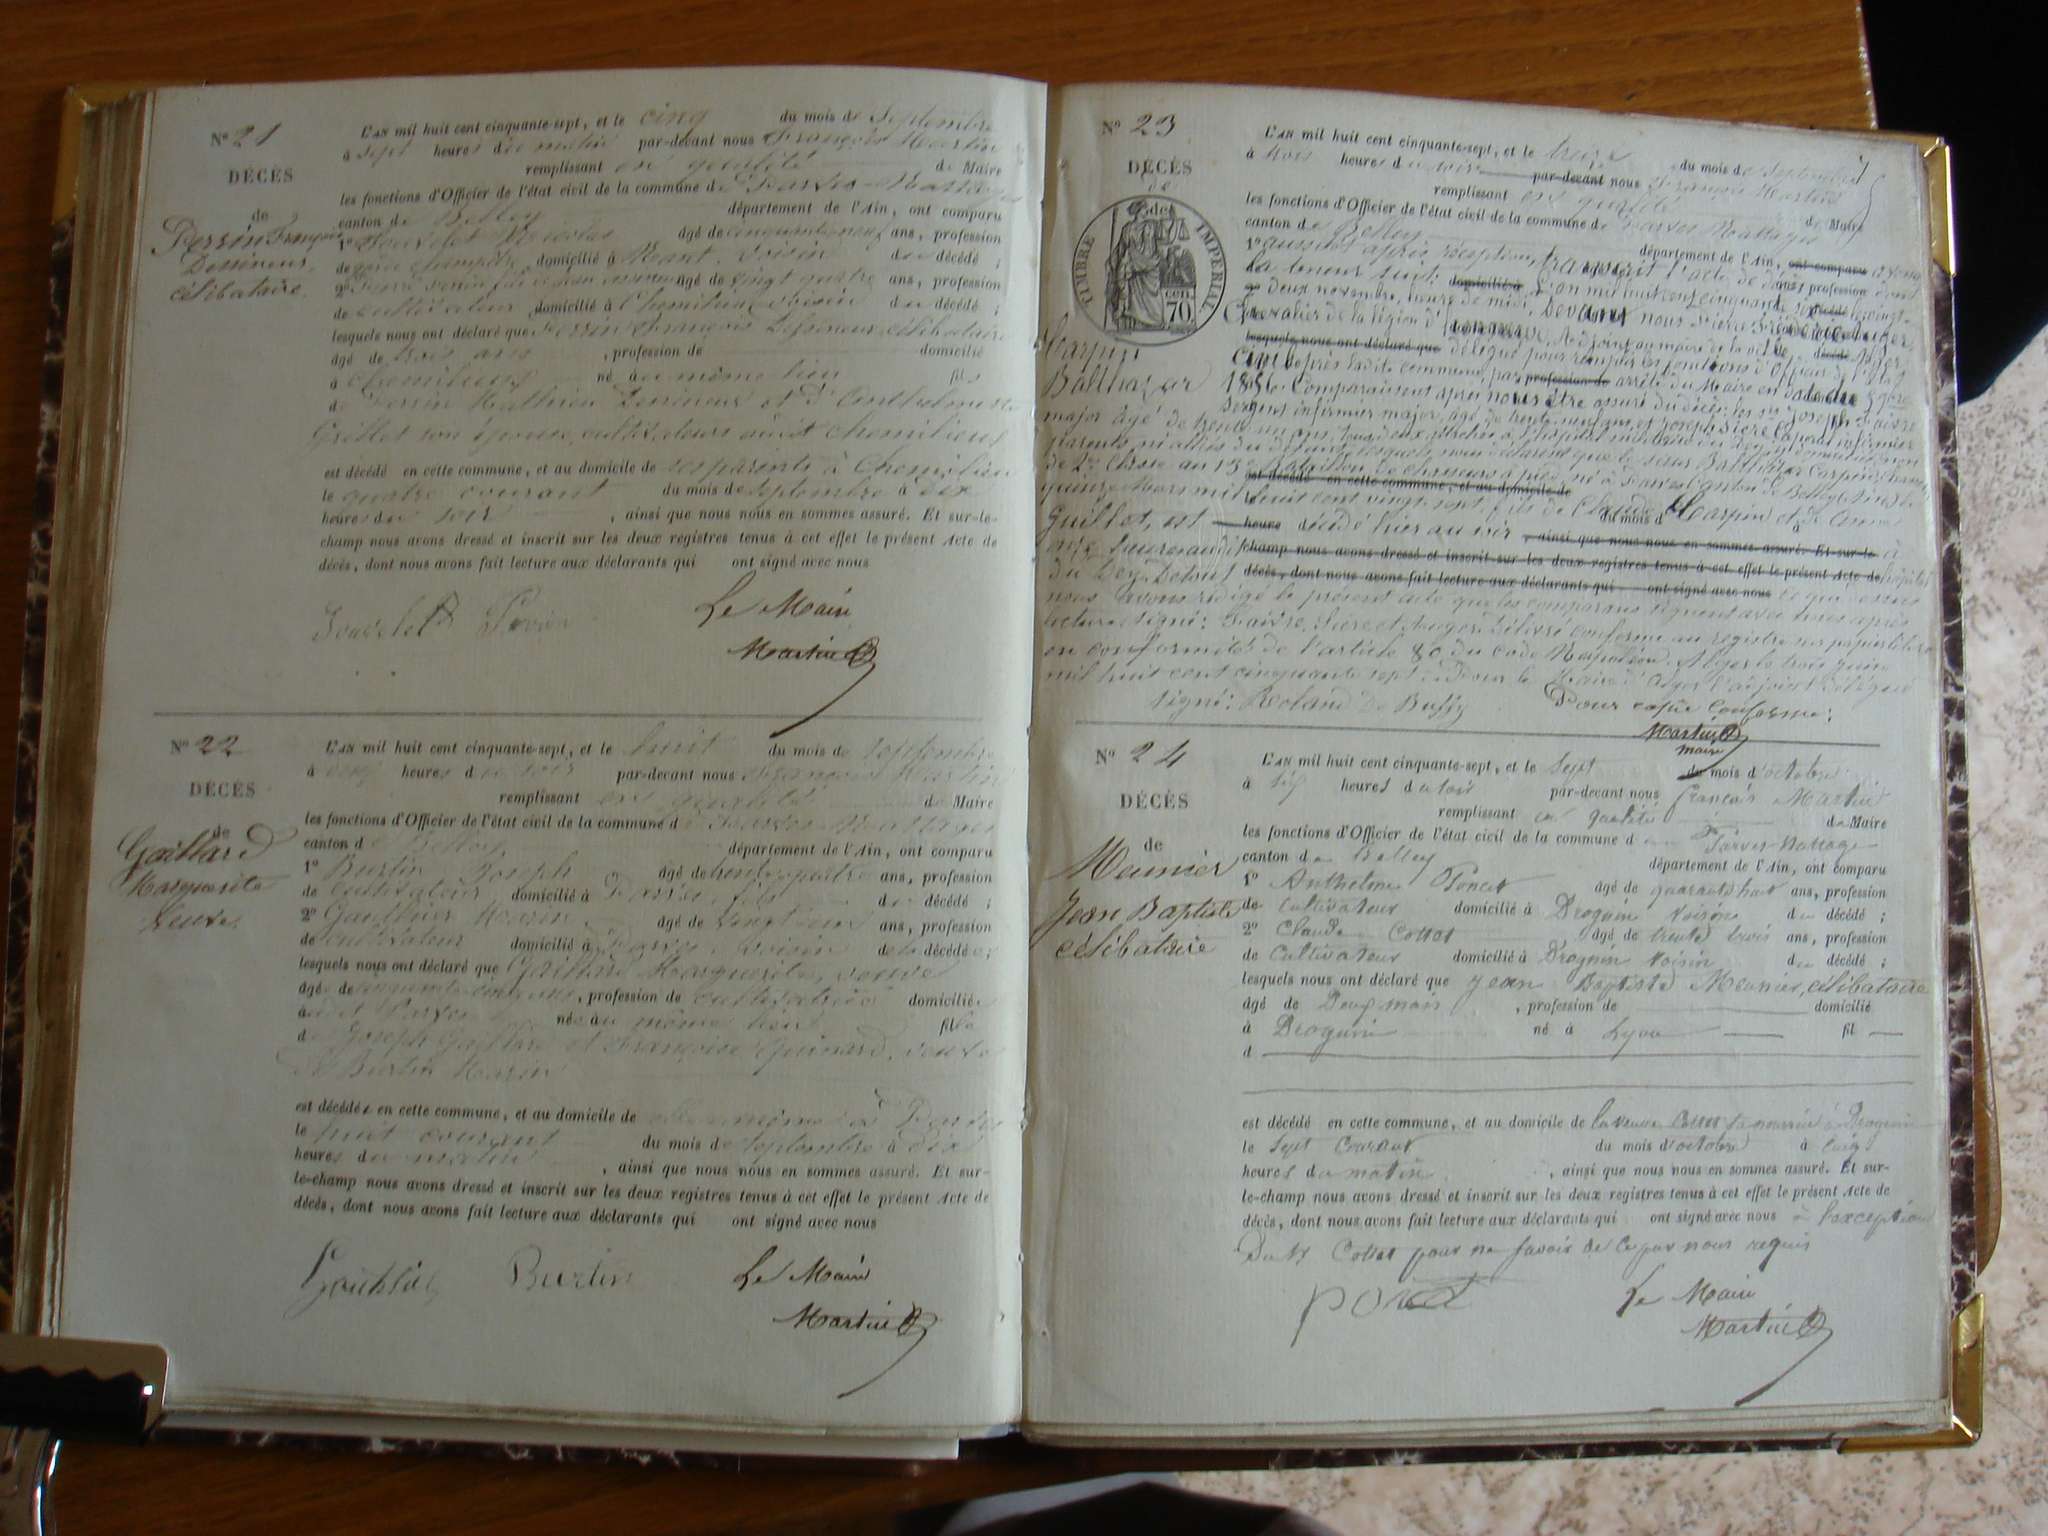 N° 21
DÉCÈS
de
Perrin François
Dessineux
célibataire.
L'AN mil huit cent cinquante-sept, et le cinq du mois de Septembre
à sept heures du matin par-devant nous François Martin
remplissant en qualité de Maire
les fonctions d'Officier de l'état civil de la commune de Parves-Nattages
canton de Belley département de l'Ain, ont comparu
1° Nicolas âgé de cinquante neuf ans, profession
de garde champêtre domicilié à Nant. Voisin du décédé ;
2° âgé de vingt quatre ans, profession
de cultivateur domicilié à Chemilieu voisin du décédé ;
lesquels nous ont déclaré que Perrin François Dessineux célibataire
âgé de trois ans , profession de domicilié
à Chemilieu né à au même lieu fils
de Perrin Mathieu Dessineux et d'Anthelmette
Grillet son épouse, cultivateurs audit Chemilieu
est décédé en cette commune, et au domicile de ses parents à Chemilieu
le quatre courant du mois de Septembre à dix
heures du soir , ainsi que nous nous en sommes assuré. Et sur-le-
champ nous avons dressé et inscrit sur les deux registres tenus à cet effet le présent Acte de
décès, dont nous avons fait lecture aux déclarants qui ont signé avec nous
Le Maire
Martin
N° 22
DÉCÈS
de
Gaillard
Marguerite
Veuve.
L'AN mil huit cent cinquante-sept, et le huit du mois de Septembre
à cinq heures du soir par-devant nous François Martin
remplissant en qualité de Maire
les fonctions d'Officier de l'état civil de la commune de Parves-Nattages
canton de Belley département de l'Ain, ont comparu
1° Burtin Joseph âgé de trente quatre ans, profession
de Cultivateur domicilié à Parves, fils de décédé ;
2° Gauthier Marin âgé de vingt ans, profession
de cultivateur domicilié à Parves. Voisin de la décédée ;
lesquels nous ont déclaré que Gaillard Marguerite, veuve
âgée de cinquante cinq ans, profession de cultivatrice domiciliée
audit Parves née à au même lieu fille
de Joseph Gaillard et Françoise Guinard, veuve
de Burtin Marin
est décédée en cette commune, et au domicile de elle même à Parves
le huit courant du mois de Septembre à dix
heures du matin , ainsi que nous nous en sommes assuré. Et sur-
le-champ nous avons dressé et inscrit sur les deux registres tenus à cet effet le présent Acte de
décès, dont nous avons fait lecture aux déclarants qui ont signé avec nous
Burtin Le Maire
Martin
N° 23
DÉCÈS
de
TIMBRE IMPÉRIAL
70 cen.
Carpin
Balthazar
L'AN mil huit cent cinquante-sept, et le treize du mois de Septembre
à trois heures du soir par-devant nous François Martin
remplissant en qualité de Maire
les fonctions d'Officier de l'état civil de la commune de Parves Nattages
canton de Belley département de l'Ain, ont comparu avons
1° aussitôt après réception, transcrit l'acte de décès profession dont
la teneur suit: domicilié à L'an mil huit cent cinquante le vingt-
deux novembre, heure de midi, Devant nous Pierre
Chevalier de la légion d'honneur, Adjoint au maire de la ville décédé d'Alger,
lesquels nous ont déclaré que délégué pour remplir les fonctions d'Officier de l'état
Civil près ladite commune, par profession de arrêté du Maire en date du
1856. Comparaissent après nous être assuré du décès: les srs Joseph Faivre
Sergent infirmier major, âgé de trente neuf ans, et Joseph Sicre Caporal infirmier
major âgé de trente un ans, tous deux attachés à l'hôpital militaire du Dey, domiciliés non
parents ni alliés du défunt, lesquels nous déclarent que le sieur Balthazar Carpin, chasseur
de 2me Classe au 13e bataillon de chasseurs à pied, né à Parves canton de Belley (Ain) le
est décédé en cette commune, et au domicile de
quinze Mars mil huit cent vingt-sept, fils de Claude Carpin et de Anne
Guillot, est heure décédé hier au soir du mois d à
, ainsi que nous nous en sommes assuré. Et sur-le- à
onze heures champ nous avons dressé et inscrit sur les deux registres tenus à cet effet le présent Acte de l'hôpital
du Dey. De tout décès, dont nous avons fait lecture aux déclarants qui ont signé avec nous ce que dessus
nous avons rédigé le présent acte que les comparans signent avec nous après
lecture. Signé: Faivre, Sicre et Auger. Délivré conforme au registre sur papier libre
en conformité de l'article 80 du Code Napoléon. Alger le trois juin
mil huit cent cinquante sept. Pour le Maire d'Alger l'adjoint délégué
signé: Roland de Bussy Pour copie conforme:
Martin
maire
N° 24
DÉCÈS
de
Meunier
Jean Baptiste
célibataire
L'AN mil huit cent cinquante-sept, et le Sept du mois d'octobre
à six heures du soir par-devant nous françois Martin
remplissant en qualité de Maire
les fonctions d'Officier de l'état civil de la commune d Parves-Nattage
canton de Belley département de l'Ain, ont comparu
1° Anthelme Poncet âgé de quarante huit ans, profession
de Cultivateur domicilié à Drognin voisin du décédé ;
2° Claude Cottet âgé de trente trois ans, profession
de Cultivateur domicilié à Drognin voisin du décédé ;
lesquels nous ont déclaré que jean Baptiste Meunier, célibataire
âgé de Deux mois , profession de domicilié
à Drognin né à Lyon fil
d
est décédé en cette commune, et au domicile de la veuve Cottet sa nourrice à Drognin
le Sept Courant du mois d'octobre à cinq
heures du matin , ainsi que nous nous en sommes assuré. Et sur-
le-champ nous avons dressé et inscrit sur les deux registres tenus à cet effet le présent Acte de
décès, dont nous avons fait lecture aux déclarants qui ont signé avec nous à l'exception
Du Sr Cottet pour ne savoir de ce par nous requis
Le Maire
Martin